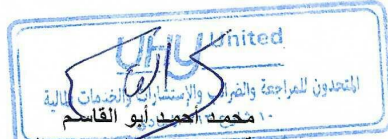 UHY United
المتحدون للمراجعة والضرائب والإستشارات والخدمات المالية
محمد أحمد أبو القاسم